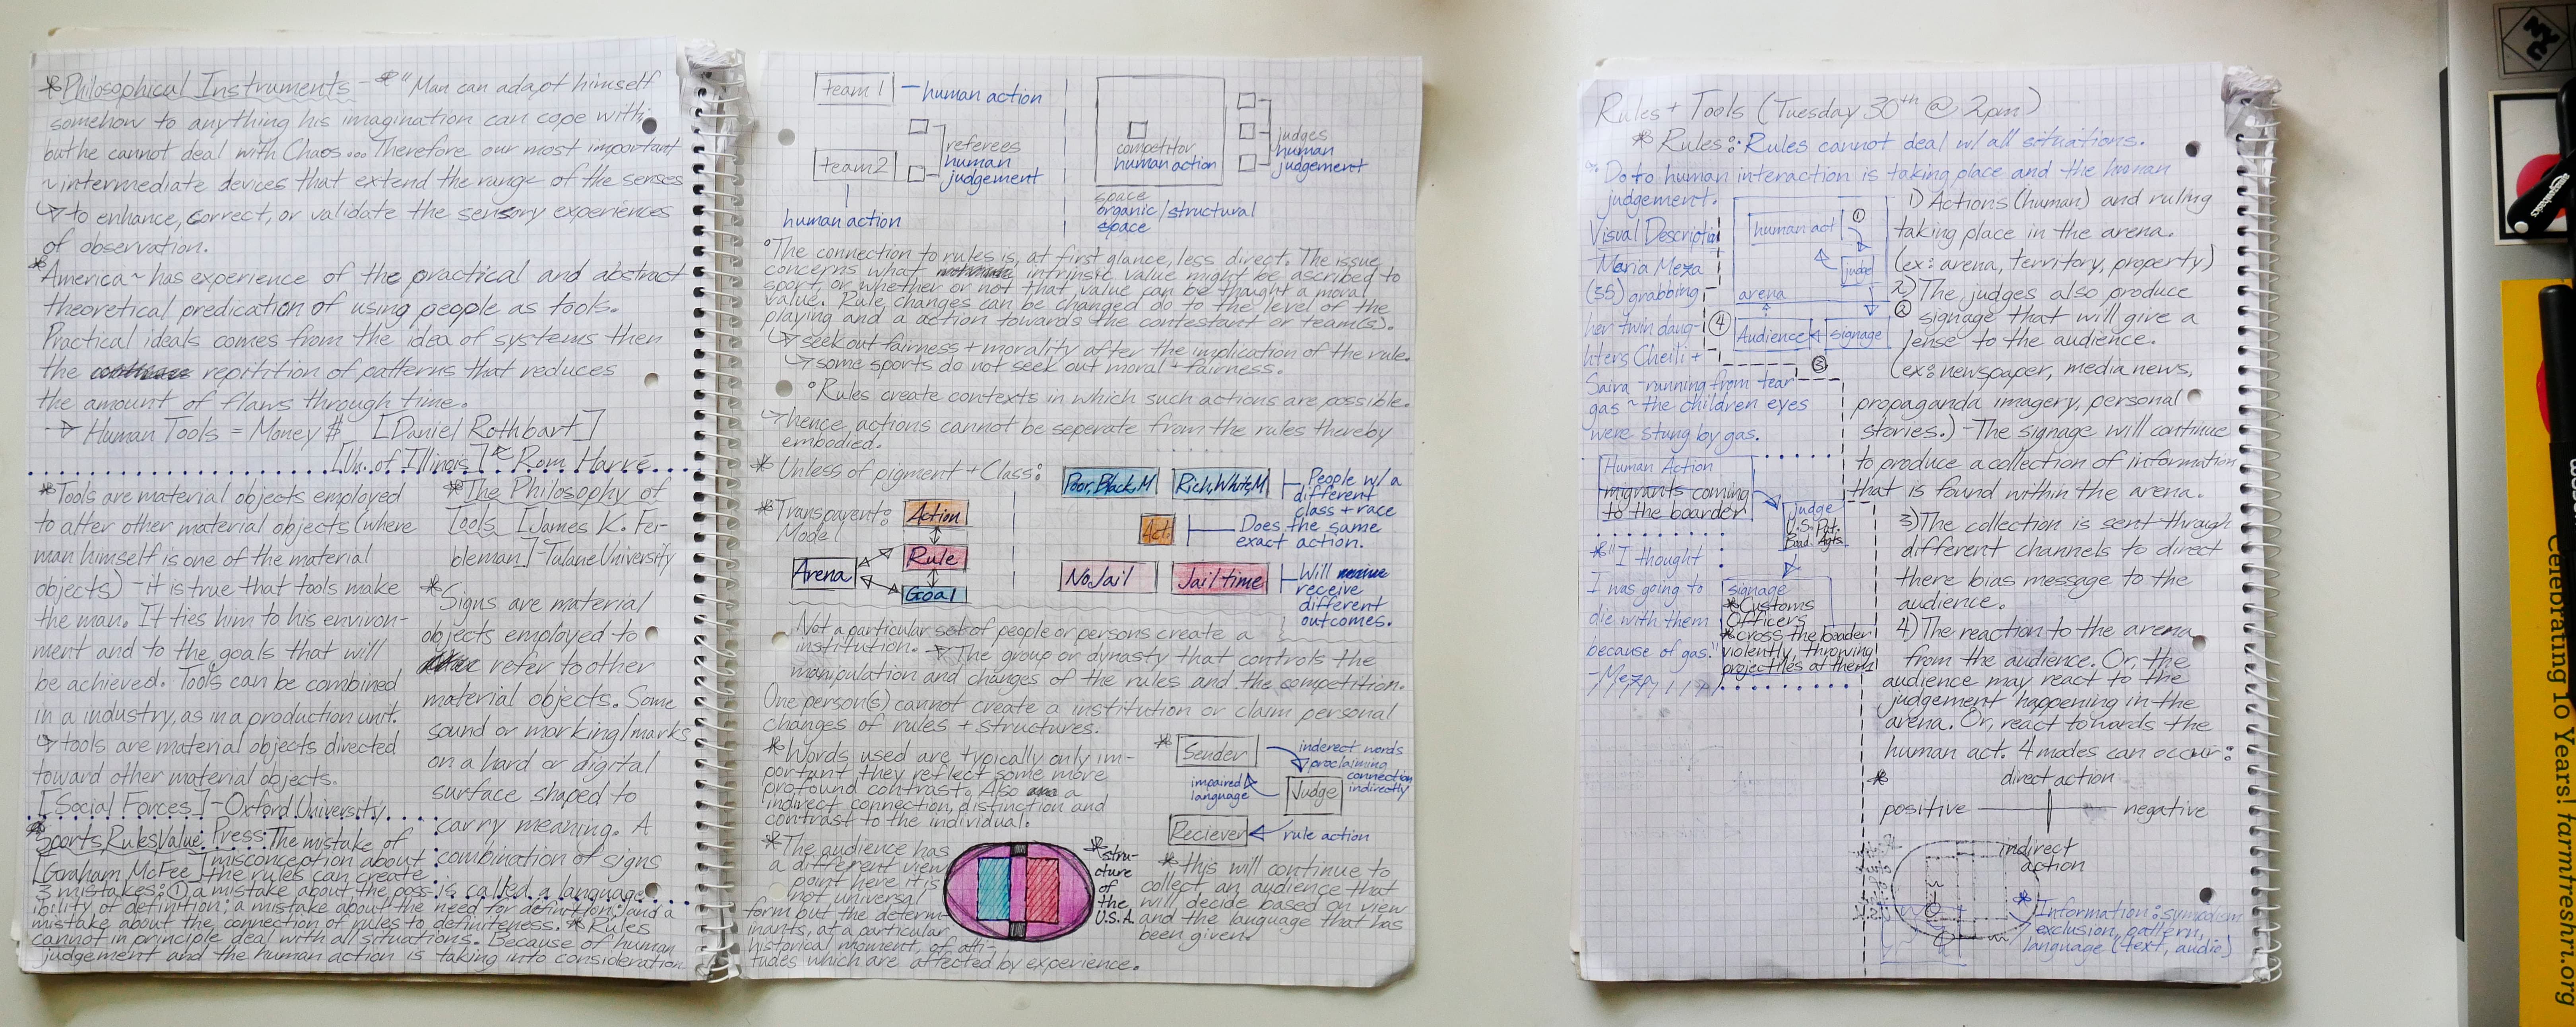 *Philosophical Instruments - *"Man can adapt himself
somehow to anything his imagination can cope with,
but he cannot deal with Chaos... Therefore our most important
~intermediate devices that extend the range of the senses
↳ to enhance, correct, or validate the sensory experiences
of observation.
*America~ has experience of the practical and abstract
theoretical predication of using people as tools.
Practical ideals comes from the idea of systems then
the repitition of patterns that reduces
the amount of flaws through time.
→ Human Tools = Money $ [Daniel Rothbart]
[Un. of Illinois] Rom Harré
*Tools are material objects employed
to alter other material objects (where
man himself is one of the material
objects) - it is true that tools make
the man. It ties him to his environ-
ment and to the goals that will
be achieved. Tools can be combined
in a industry, as in a production unit.
↳ tools are material objects directed
toward other material objects.
[Social Forces] - Oxford University
Press:
*The Philosophy of
Tools [James K. Fei-
bleman] - Tulane University
*Signs are material
objects employed to
refer to other
material objects. Some
sound or marking/marks
on a hard or digital
surface shaped to
carry meaning. A
combination of signs
is called a language.
*Sports, Rules Value: The mistake of
[Graham McFee] misconception about
the rules can create
3 mistakes: ① a mistake about the poss-
ibility of definition; a mistake about the need for definition; and a
mistake about the connection of rules to definiteness. *Rules
cannot in principle deal with all situations. Because of human
judgement and the human action is taking into consideration
team 1 - human action
referees
human
judgement
team 2
human action
competitor
human action
judges
human
judgement
space
organic/structural
space
°The connection to rules is, at first glance, less direct. The issue
concerns what intrinsic value might be ascribed to
sport, or whether or not that value can be thought a moral
value. Rule changes can be changed do to the level of the
playing and a action towards the contestant or team(s).
↳ seek out fairness + morality after the implication of the rule.
↳ some sports do not seek out moral + fairness.
°Rules create contexts in which such actions are possible.
↳ hence actions cannot be seperate from the rules thereby
embodied.
*Unless of pigment + Class:
Poor, Black, M
Rich, White, M
People w/ a
different
class + race
*Transparent:
Model
Action
Rule
Goal
Arena
Act.
Does the same
exact action.
No Jail
Jail time
Will
receive
different
outcomes.
Not a particular set of people or persons create a
institution. → The group or dynasty that controls the
manipulation and changes of the rules and the competition.
One person(s) cannot create a institution or claim personal
changes of rules + structures.
*Words used are typically only im-
portant they reflect some more
profound contrast. Also a
indirect connection, distinction and
contrast to the individual.
* Sender
inderect words
proclaiming
connection
indirectly
impaired
language
Judge
Reciever
rule action
*The audience has
a different view
point here it is
not universal
form but the determ-
inants, at a particular
historical moment, of atti-
tudes which are affected by experience.
*stru-
cture
of
the
U.S.A.
*this will continue to
collect an audience that
will decide based on view
and the language that has
been given.
Rules + Tools (Tuesday 30th @ 2pm)
*Rules: Rules cannot deal w/ all situations.
Do to human interaction is taking place and the human
judgement.
Visual Description
Maria Meza
(35) grabbing
her twin daug-
hters Cheili +
Saira - running from tear
gas ~ the children eyes
were stung by gas.
human act
①
judge
arena
②
Audience
signage
④
③
1) Actions (human) and ruling
taking place in the arena.
(ex: arena, territory, property)
2) The judges also produce
signage that will give a
lense to the audience.
(ex: newspaper, media news,
propaganda imagery, personal
stories.) - The signage will continue
to produce a collection of information
that is found within the arena.
3) The collection is sent through
different channels to direct
there bias message to the
audience.
4) The reaction to the arena
from the audience. Or, the
audience may react to the
judgement happening in the
arena. Or, react towards the
human act. 4 modes can occur:
Human Action
migrants coming
to the boarder
Judge
U.S. Pat.
Boad. Agts.
signage
*Customs
Officers
*cross the boader
violently, throwing
projectiles at them
*"I thought
I was going to
die with them
because of gas."
-Meza
*
direct action
positive
negative
indirect
action
*
Information: symbolism
exclusion, pattern,
language (text, audio)
Celebrating 10 Years! farmfreshri.org